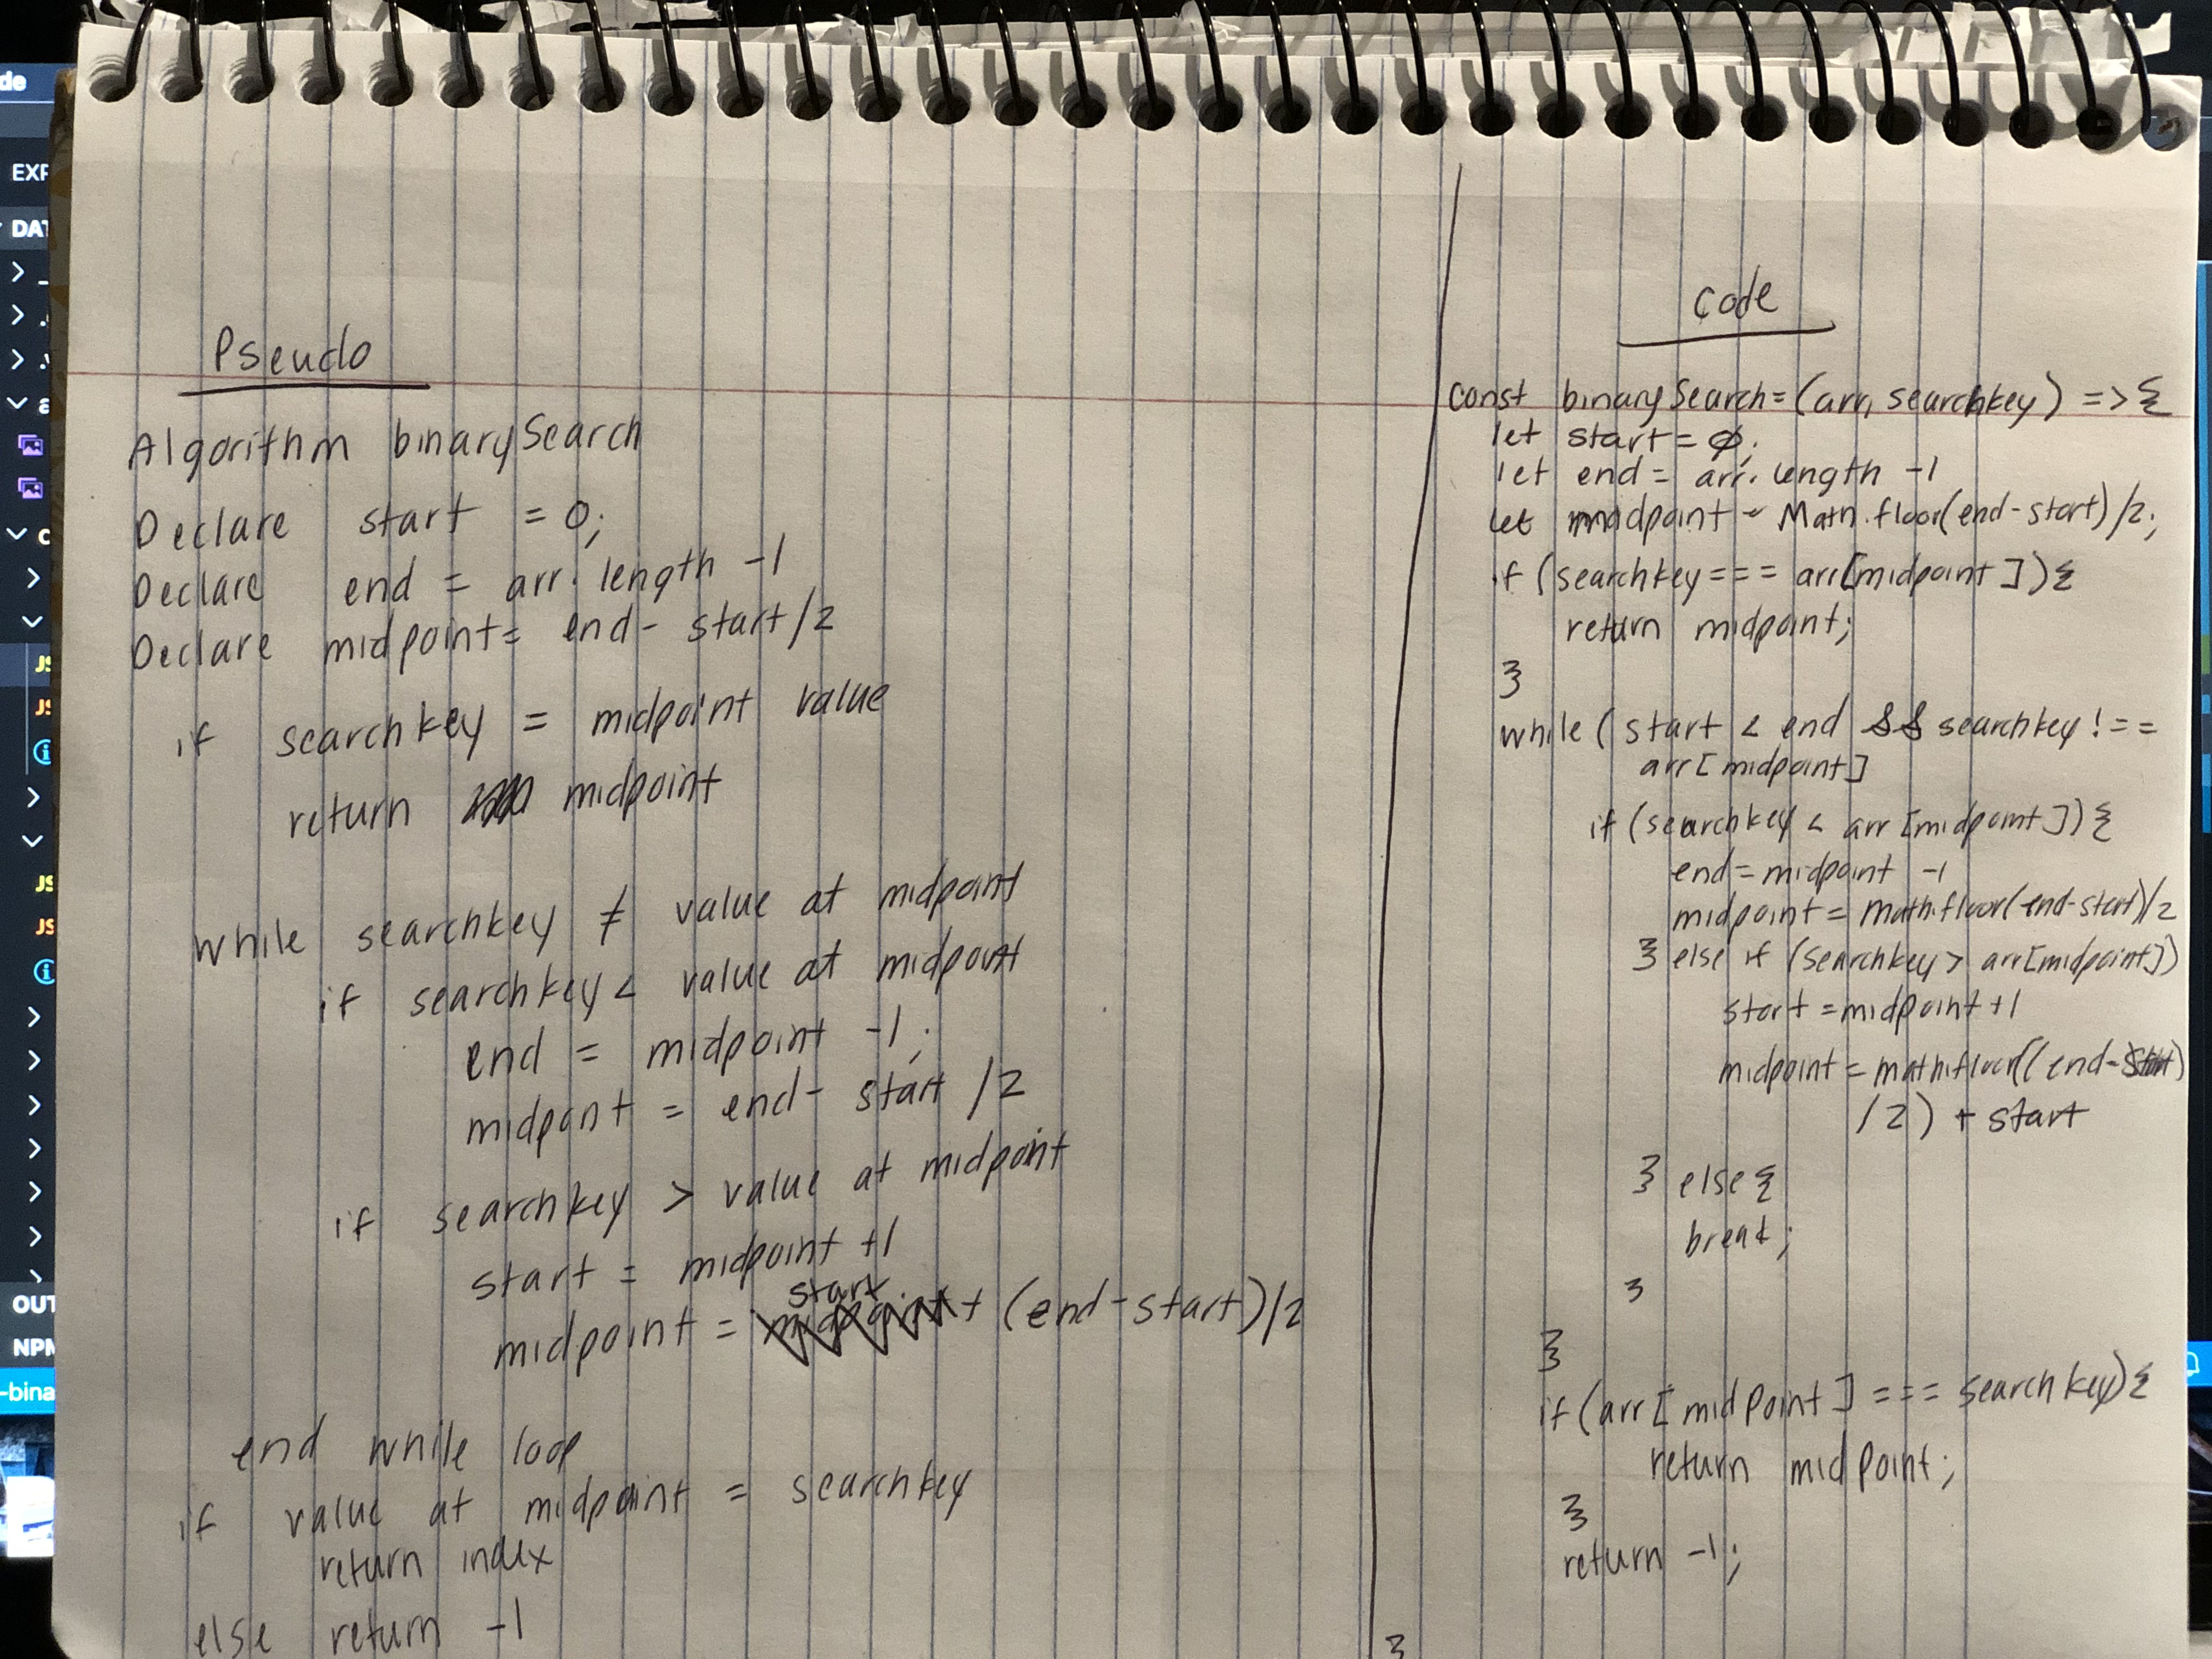 Pseudo
Algorithm binarySearch
Declare start = 0;
Declare end = arr.length -1
Declare midpoint = end - start/2
if searchkey = midpoint value
return midpoint
while searchkey ≠ value at midpoint
if searchkey < value at midpoint
end = midpoint -1;
midpont = end - start /2
if searchkey > value at midpoint
start = midpoint +1
start
midpoint = midpoint + (end-start)/2
end while loop
if value at midpoint = searchkey
return index
else return -1
Code
const binarySearch = (arr, searchkey) => {
let start = 0;
let end = arr.length -1
let midpoint = Math.floor(end-start)/2;
if (searchkey === arr[midpoint]){
return midpoint;
}
while ( start < end && searchkey !==
arr[midpoint]
if (searchkey < arr[midpoint]) {
end = midpoint -1
midpoint = math.floor(end-start)/2
} else if (searchkey > arr[midpoint])
start = midpoint +1
midpoint = math.floor((end-start)
/2) + start
} else {
break;
}
}
if (arr[midpoint] === searchkey) {
return midpoint;
}
return -1;
}
de
EXP
DAT
JS
JS
JS
JS
OUT
NPM
-bina